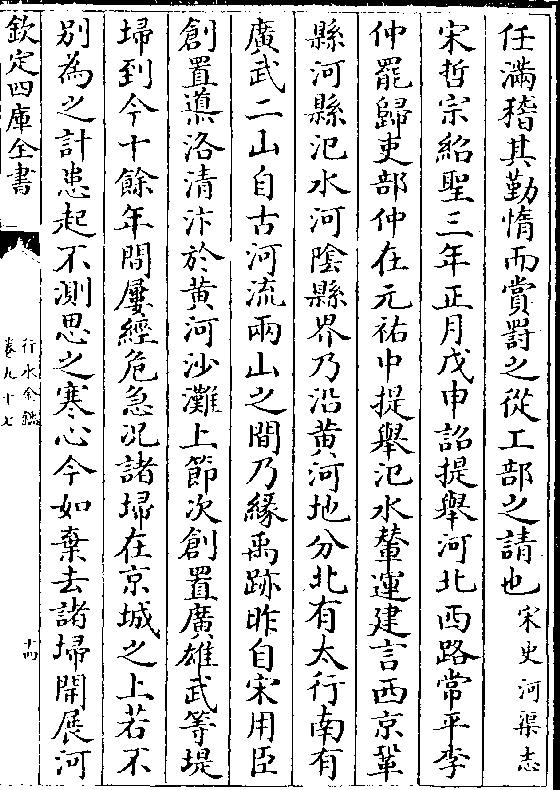 任滿稽其勤惰而賞罰之從工部之請也宋史河渠志
宋哲宗紹聖三年正月戊申詔提舉河北西路常平李
仲罷歸吏部仲在元祐中提舉汜水輦運建言西京鞏
縣河縣汜水河隂縣界乃沿黄河地分北有太行南有
廣武二山自古河流兩山之間乃緣禹跡昨自宋用臣
創置導洛清汴於黄河沙灘上節次創置廣雄武等堤
埽到今十餘年間屢經危急况諸埽在京城之上若不
别為之計患起不測思之寒心今如棄去諸埽開展河
欽定四庫全書
行水金鑑
卷九十七
十四